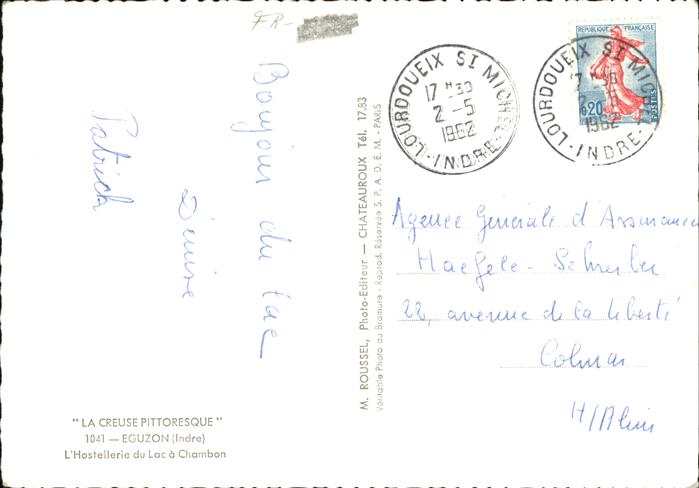 FR-
Bonjour du lac
Denise
Patrick
" LA CREUSE PITTORESQUE "
1041 — EGUZON (Indre)
L'Hostellerie du Lac à Chambon
M. ROUSSEL, Photo-Editeur — CHATEAUROUX Tél. 17.83
Véritable Photo au Bromure - Reprod. Réservée S. P. A. D. E. M. - PARIS
LOURDOUEIX ST MICHEL
17 H 30
2 - 5
1962
- INDRE -
REPUBLIQUE FRANÇAISE
0,20
POSTES
LOURDOUEIX ST MICHEL
17 H 30
2 - 5
1962
- INDRE -
Agence Générale d'Assurances
Haefele - Schreiber
22, avenue de la liberté
Colmar
H/Rhin